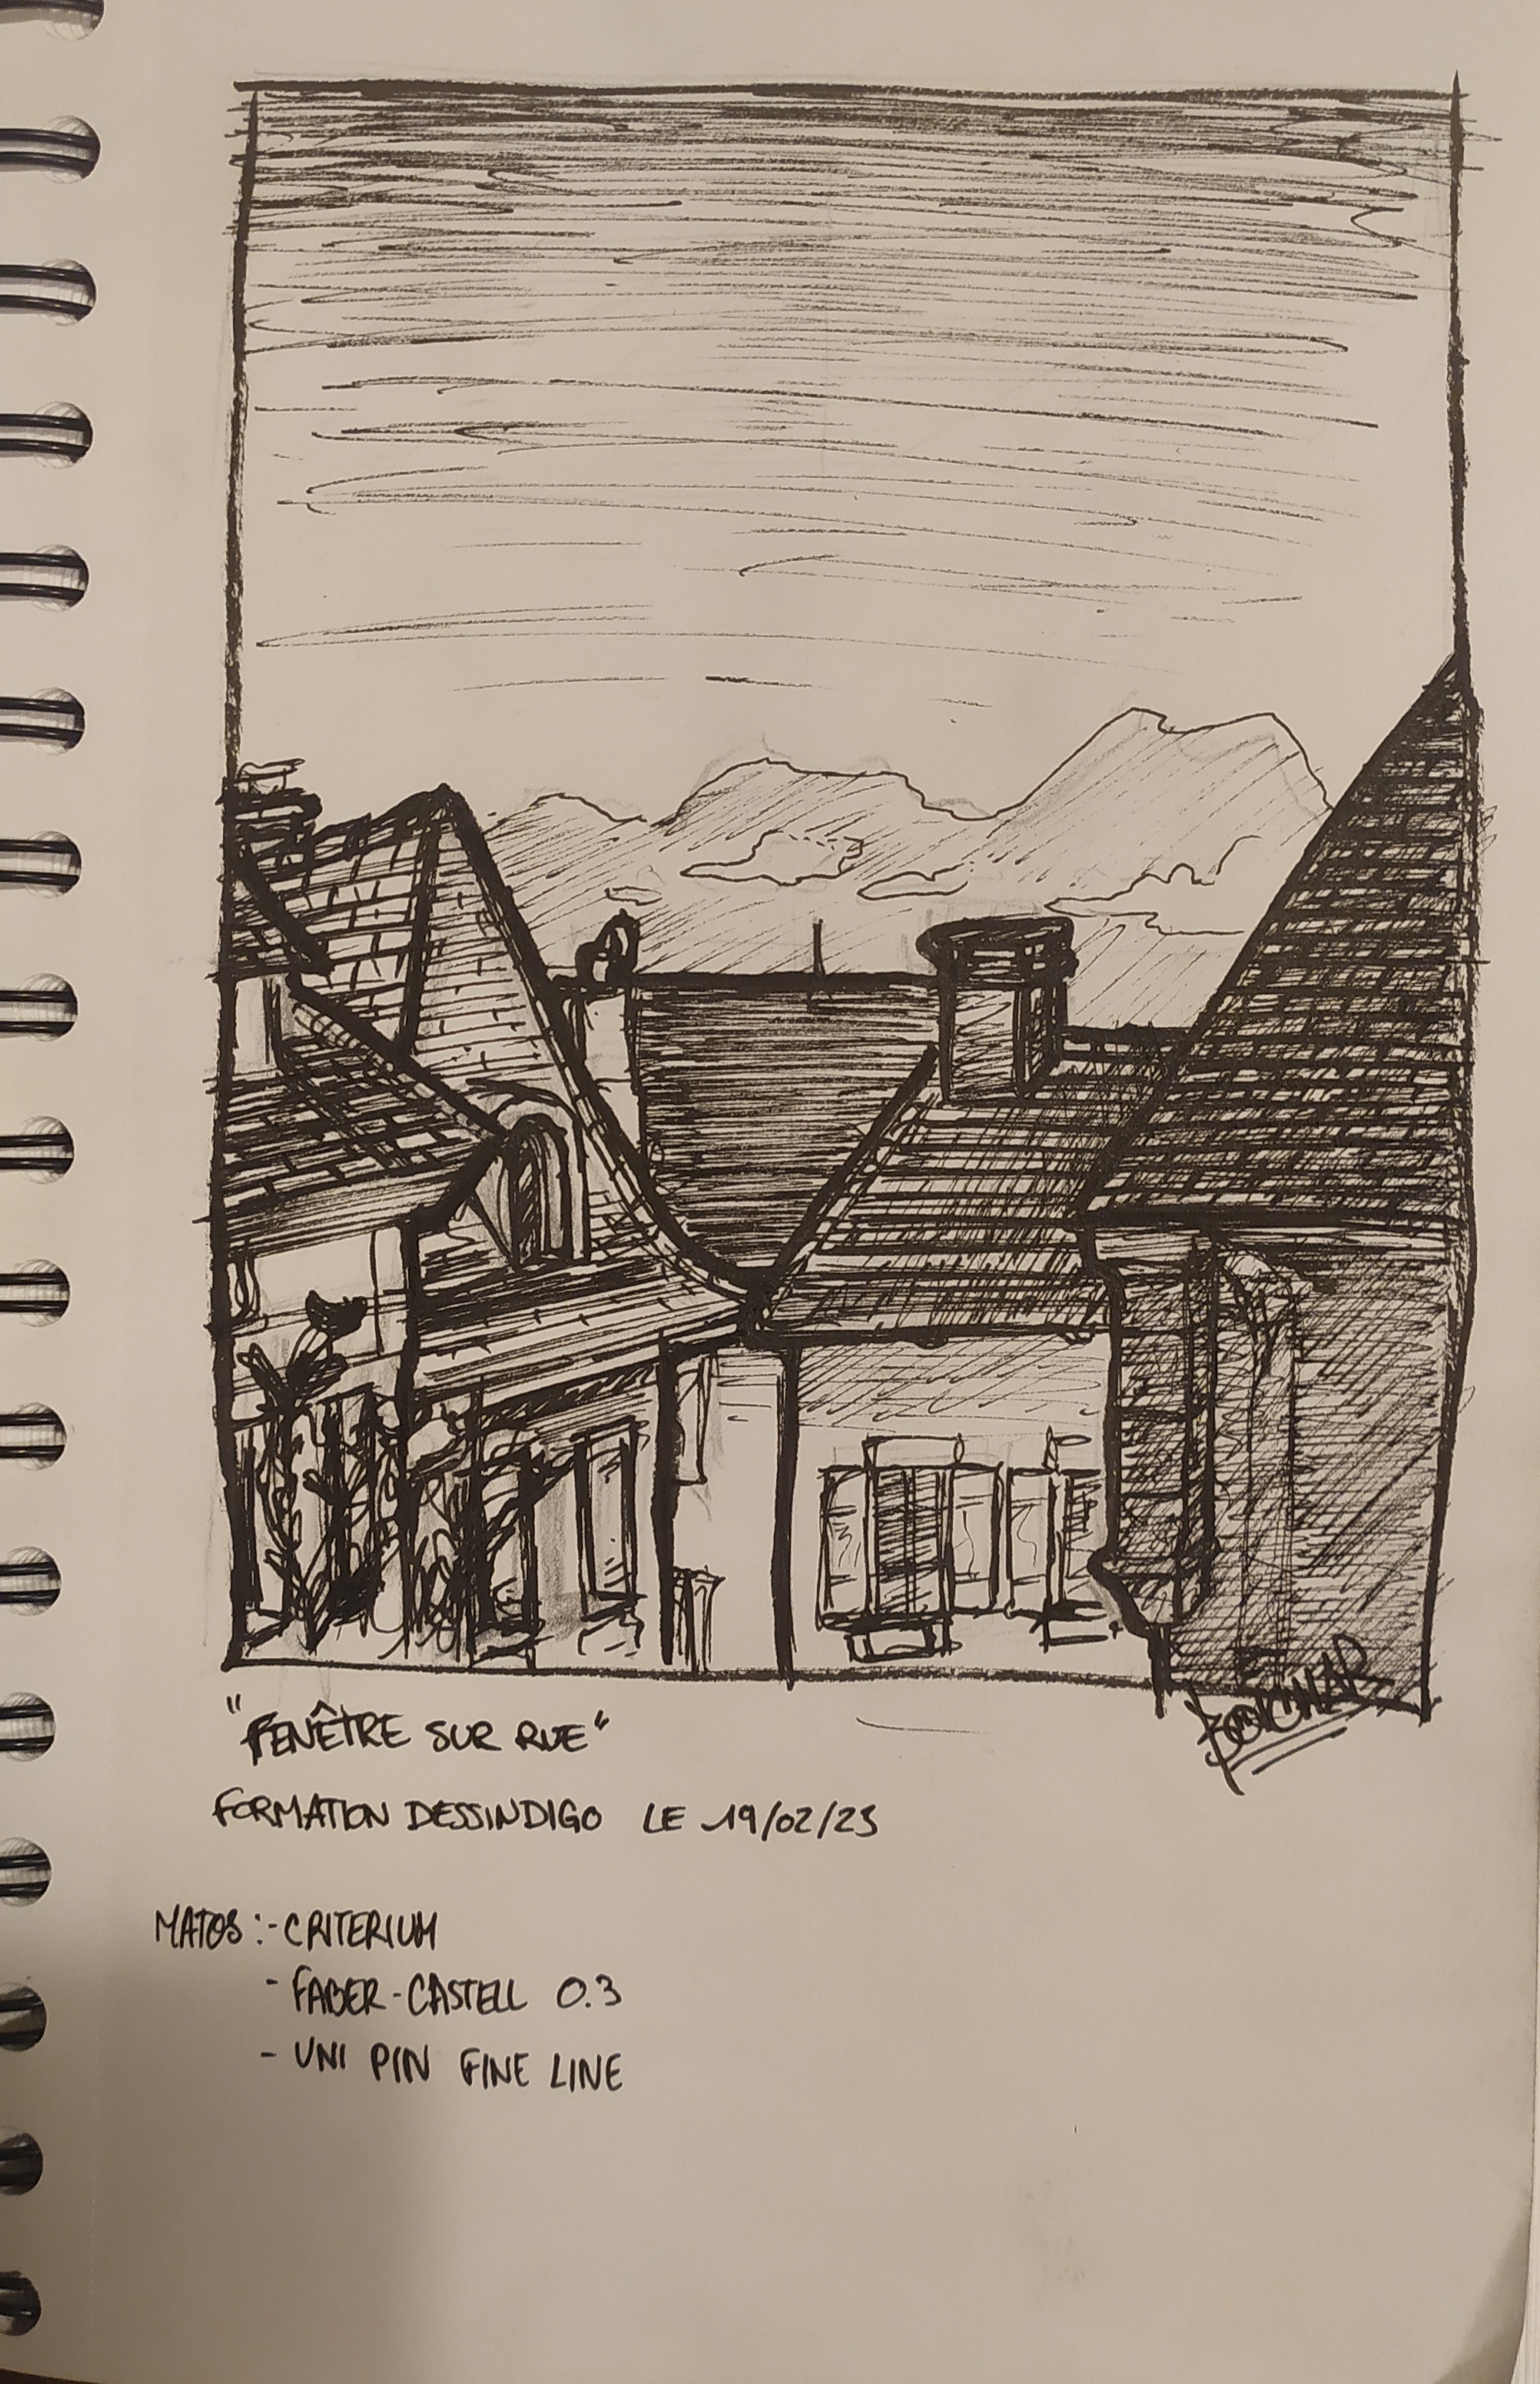 "FENÊTRE SUR RUE"
FORMATION DESSINDIGO LE 19/02/23
MATOS :- CRITERIUM
- FABER-CASTELL 0.3
- UNI PIN FINE LINE